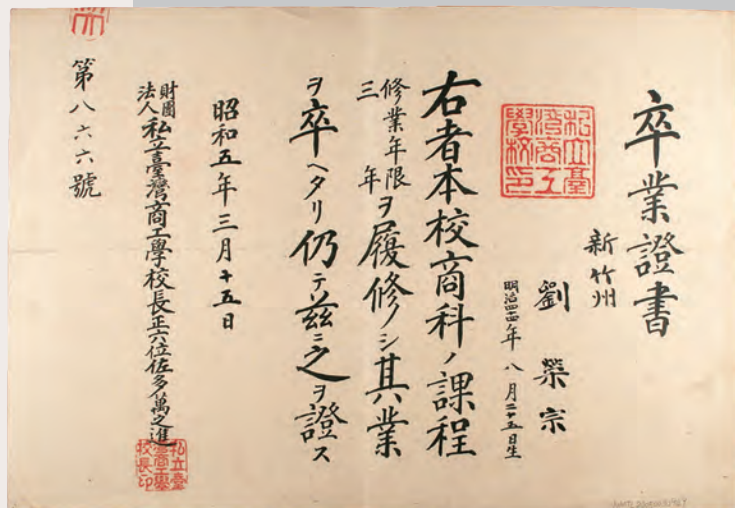 卒業證書
新竹州
劉榮宗
明治四十四年八月二十五日生
私立臺灣商工學校印
右者本校商科ノ課程
修業年限三年ヲ履修シ其業
ヲ卒ヘタリ仍テ茲ニ之ヲ證ス
昭和五年三月十五日
財團法人私立臺灣商工學校長正六位佐多萬之進
私立臺灣商工學校長印
第八六六號